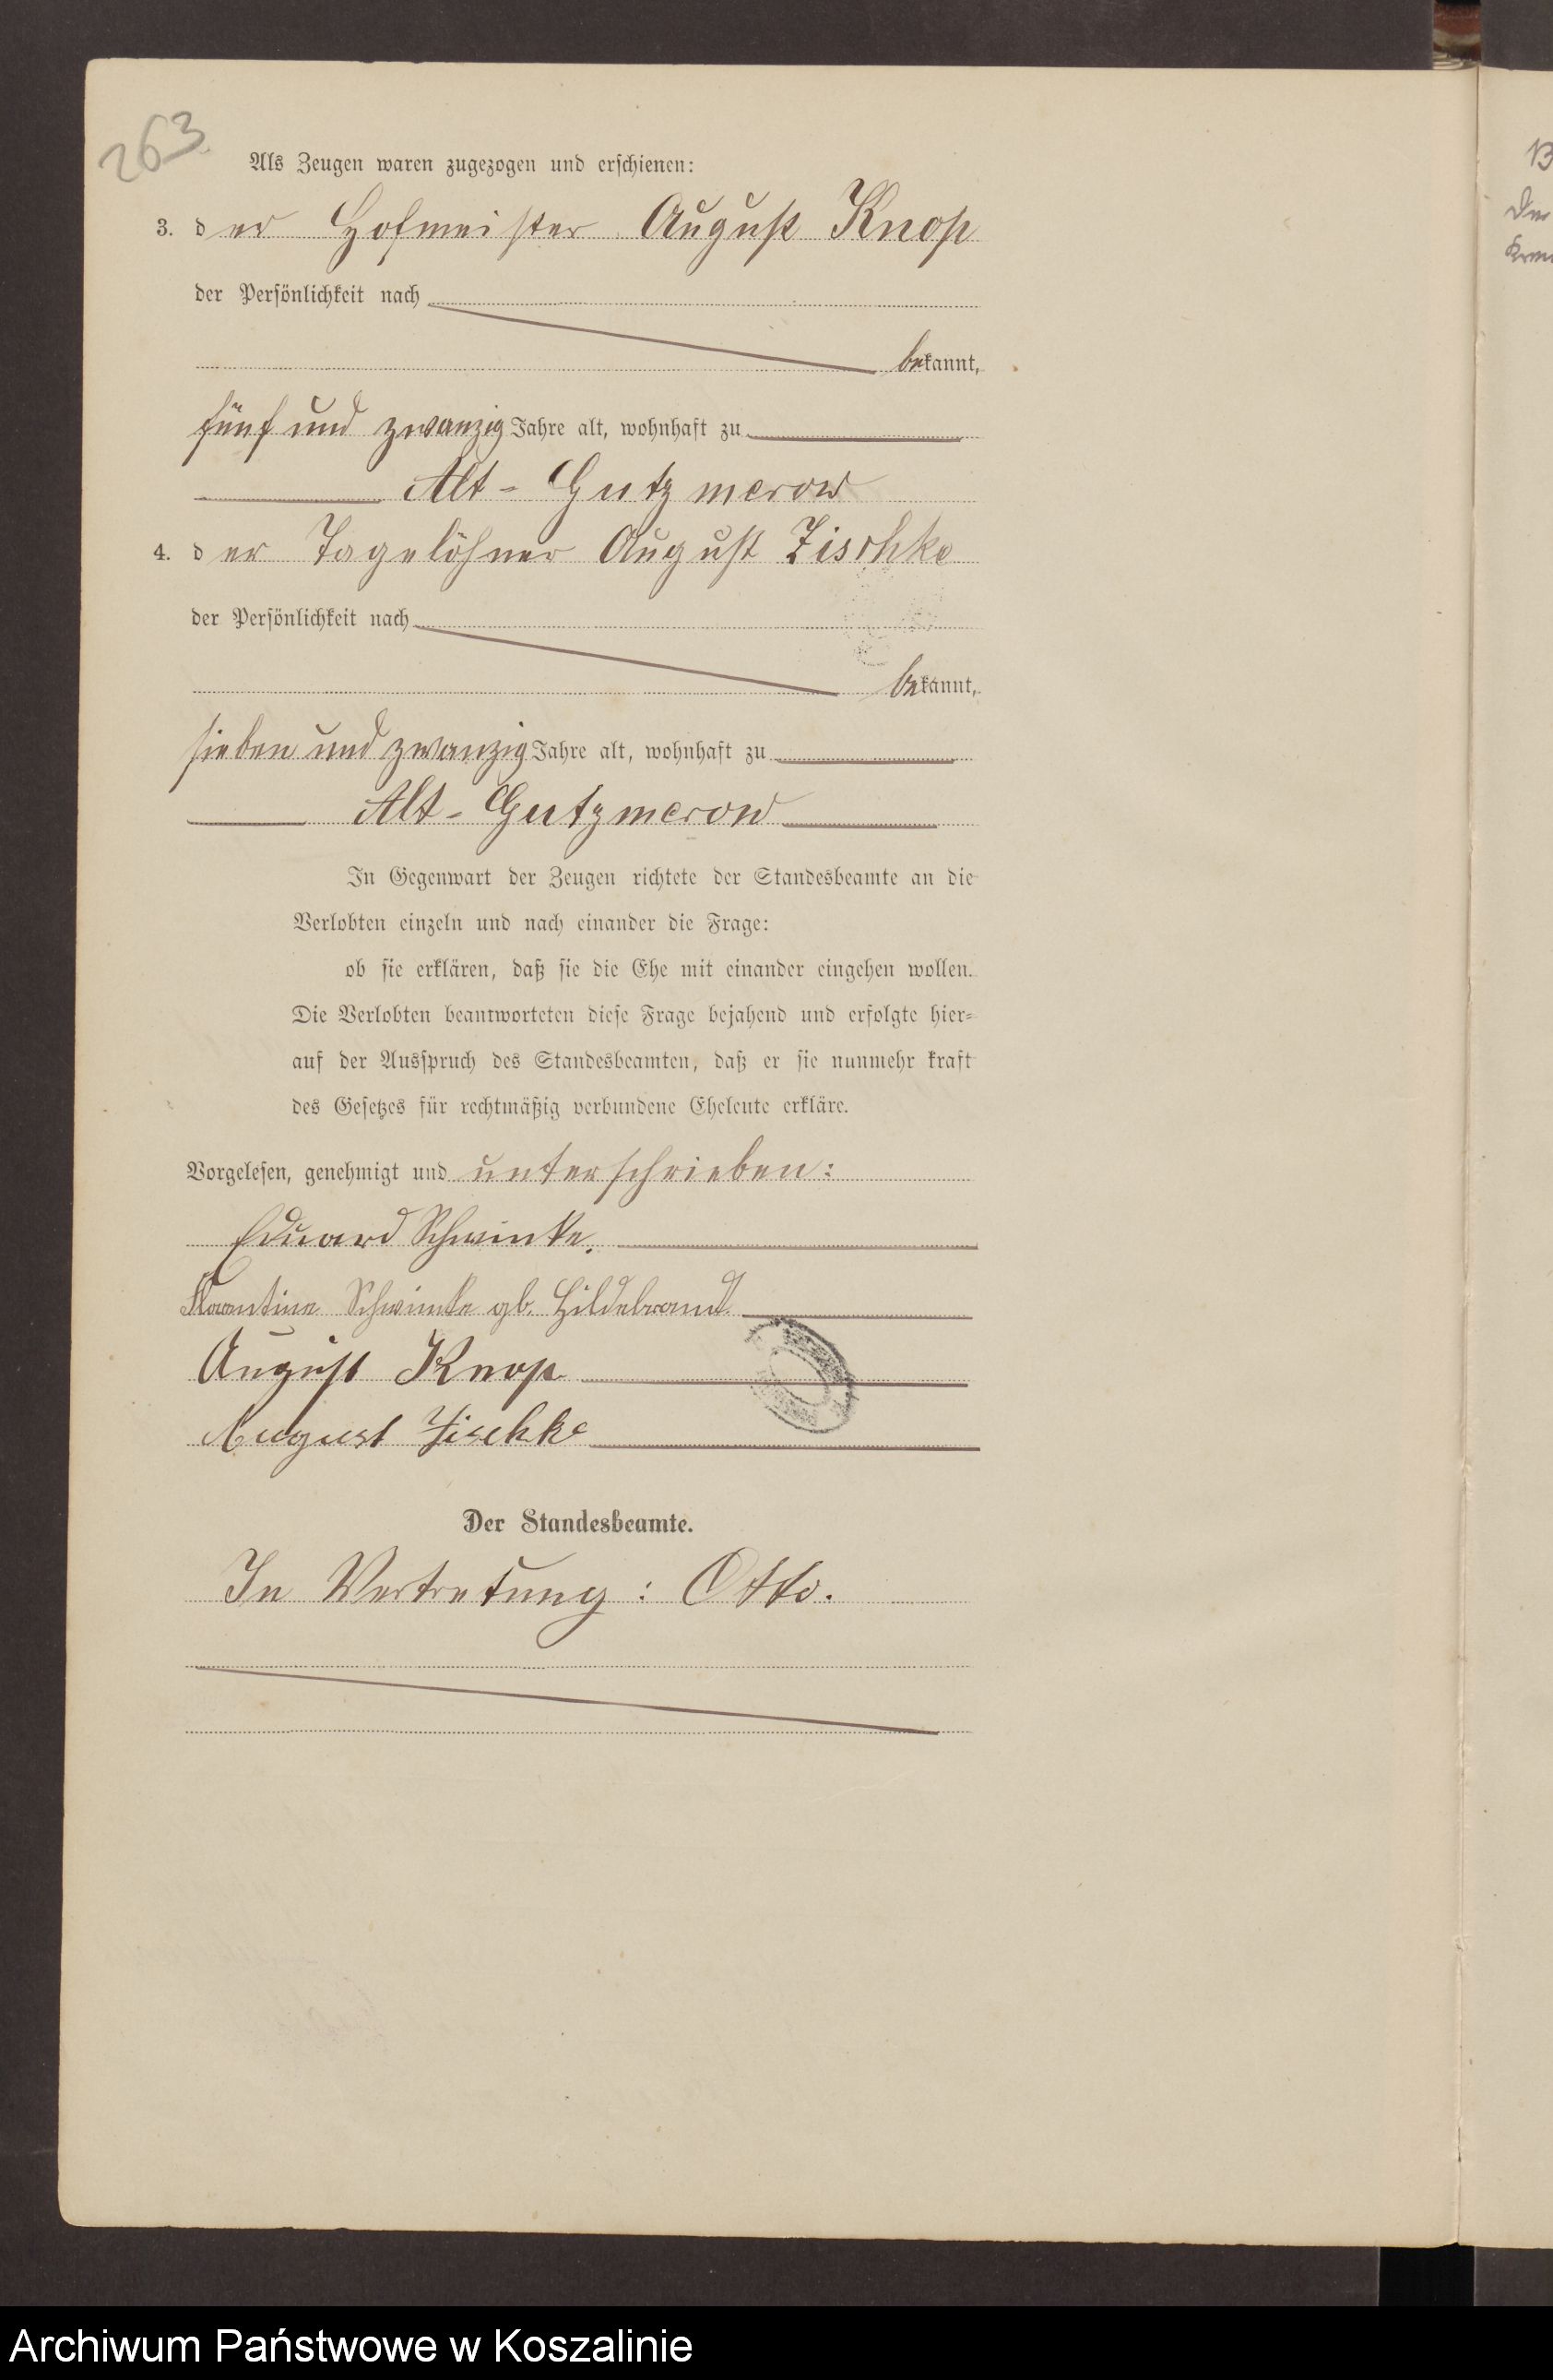 263.
Als Zeugen waren zugezogen und erschienen:
3. der Hofmeister August Knop
der Persönlichkeit nach
bekannt,
fünf und zwanzig Jahre alt, wohnhaft zu
Alt-Gutzmerow
4. der Tagelöhner August Zischke
der Persönlichkeit nach
bekannt,
sieben und zwanzig Jahre alt, wohnhaft zu
Alt-Gutzmerow
In Gegenwart der Zeugen richtete der Standesbeamte an die
Verlobten einzeln und nach einander die Frage:
ob sie erklären, daß sie die Ehe mit einander eingehen wollen.
Die Verlobten beantworteten diese Frage bejahend und erfolgte hier-
auf der Ausspruch des Standesbeamten, daß er sie nunmehr kraft
des Gesetzes für rechtmäßig verbundene Eheleute erkläre.
Vorgelesen, genehmigt und unterschrieben:
Eduard Schwinke.
Schwinke gb. Hildebrandt.
August Knop
August Zischke
Der Standesbeamte.
In Vertretung: Otto.
Archiwum Państwowe w Koszalinie